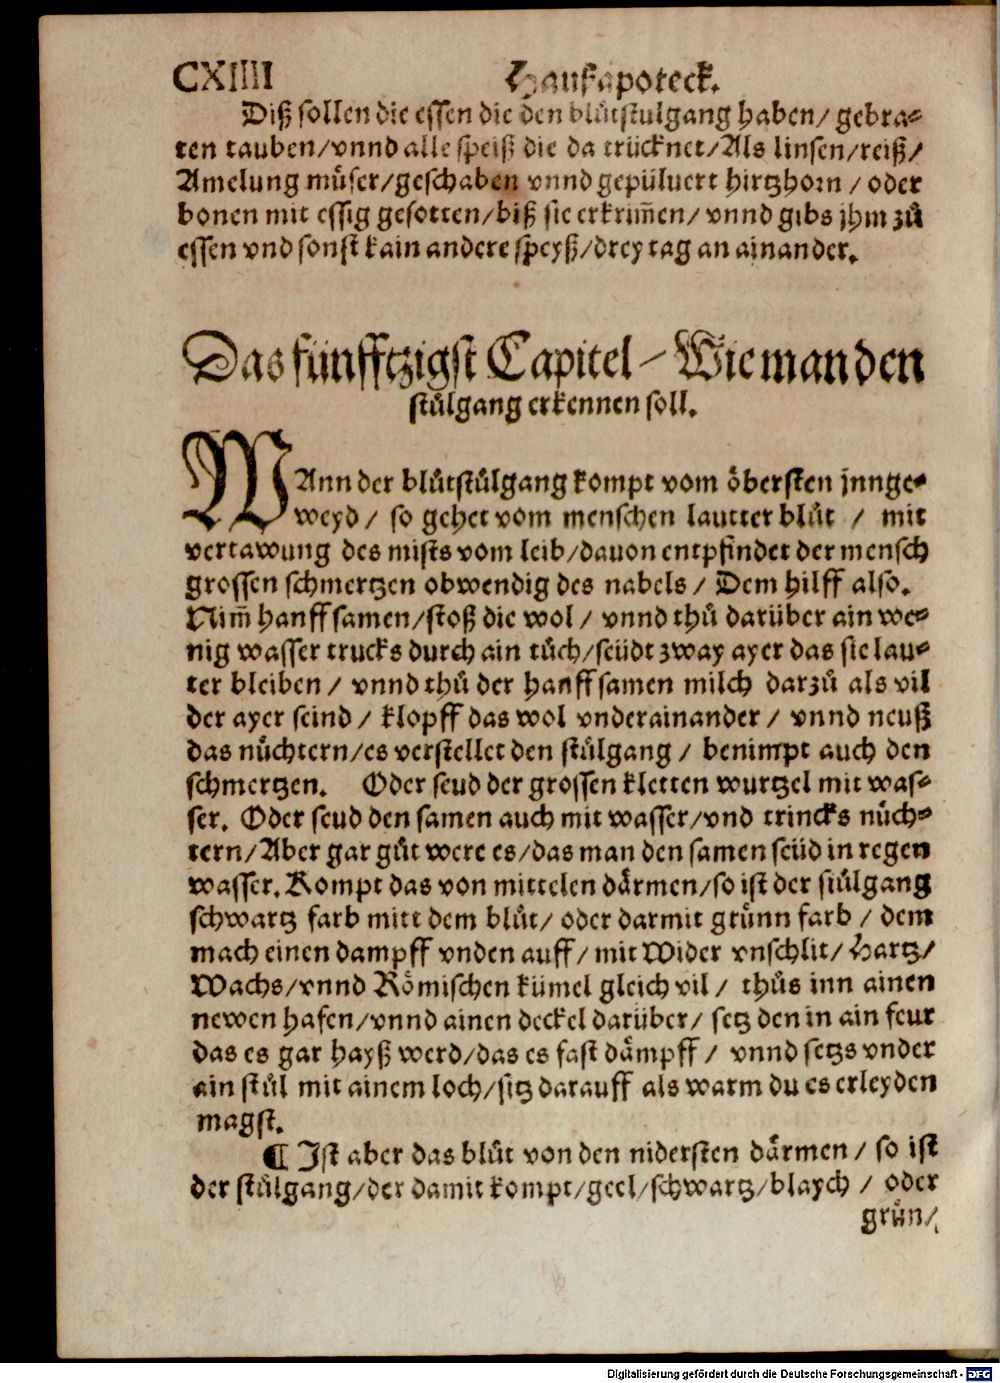 CXIIII Haußapoteck.
Diß sollen die essen die den blůtstůlgang haben/ gebra⸗
ten tauben/vnnd alle speiß die da trücknet/Als linsen/reiß/
Amelung můser/geschaben vnnd gepüluert hirtzhorn / oder
bonen mit essig gesotten/biß sie erkrim̃en/ vnnd gibs jhm zů
essen vnd sonst kain andere speyß/drey tag an ainander.
Das fünfftzigst Capitel / Wie man den
stůlgang erkennen soll.
WAnn der blůtstůlgang kompt vom öbersten jnnge⸗
weyd / so gehet vom menschen lautter blůt / mit
vertawung des mists vom leib/dauon entpfindet der mensch
grossen schmertzen obwendig des nabels / Dem hilff also.
Nim̃ hanff samen/stoß die wol / vnnd thů darüber ain we⸗
nig wasser trucks durch ain tůch/seüdt zway ayer das sie lau⸗
ter bleiben / vnnd thů der hanff samen milch darzů als vil
der ayer seind / klopff das wol vnderainander / vnnd neuß
das nůchtern/es verstellet den stůlgang / benimpt auch den
schmertzen. Oder seud der grossen kletten wurtzel mit was⸗
ser. Oder seud den samen auch mit wasser/vnd trincks nůch⸗
tern/Aber gar gůt were es/das man den samen seüd in regen
wasser. Kompt das von mittelen dårmen/so ist der stůlgang
schwartz farb mitt dem blůt/ oder darmit grůnn farb / dem
mach einen dampff vnden auff/ mit Wider vnschlit/ Hartz/
Wachs/vnnd Römischen kümel gleich vil / thůs inn ainen
newen hafen/vnnd ainen deckel darüber/ setz den in ain feur
das es gar hayß werd/das es fast dåmpff / vnnd setzs vnder
ein stůl mit ainem loch/sitz darauff als warm du es erleyden
magst.
¶ Ist aber das blůt von den nidersten dårmen / so ist
der stůlgang/der damit kompt/geel/schwartz/blaych / oder
grůn/
Digitalisierung gefördert durch die Deutsche Forschungsgemeinschaft - DFG